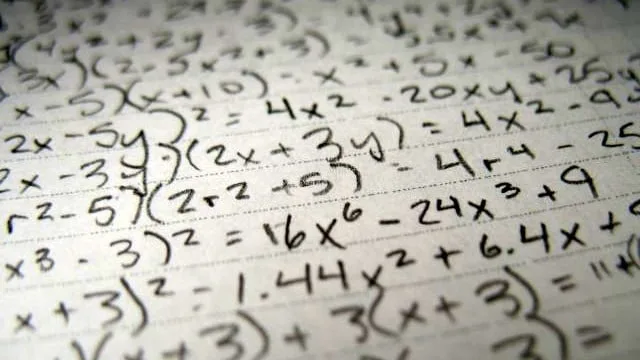 3x)(2 - 5x2 + 3)
x - 5)(x + 10) - x² + 5x - 50
2x - 5y)² = 4x² - 20xy + 25y
2x - 3y)(2x + 3y) = 4x² - 9
r² - 5)(2r² + 5) - 4r⁴ - 25
x³ - 3)² = 16x⁶ - 24x³ + 9
x + 3)² = 1.44x² + 6.4x +
x + 3) + 3(x + 3) = 11 + (
3) =